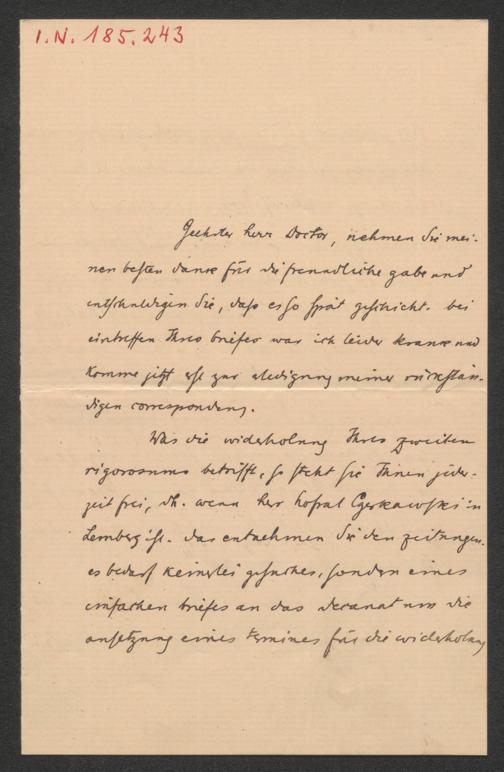 I.N. 185.243
Geehrter herr Doctor, nehmen Sie mei-
nen besten danke für die freundliche gabe und
entschuldigen Sie, daß es so spät geschicht. bei
eintreffen Ihres briefes war ich leider krank und
komme jetzt erst zur erledigung meiner rückstän-
digen correspondenz.
Was die widerholung Ihres zweiten
rigorosums betrifft, so steht sie Ihnen jeder-
zeit frei, dh. wenn herr hofrat Czerkawski in
Lemberg ist. das entnehmen Sie den zeitungen.
es bedarf keinerlei gesuches, sondern eines
einfachen briefes an das decanat um die
ansetzung eines termines für die widerholung